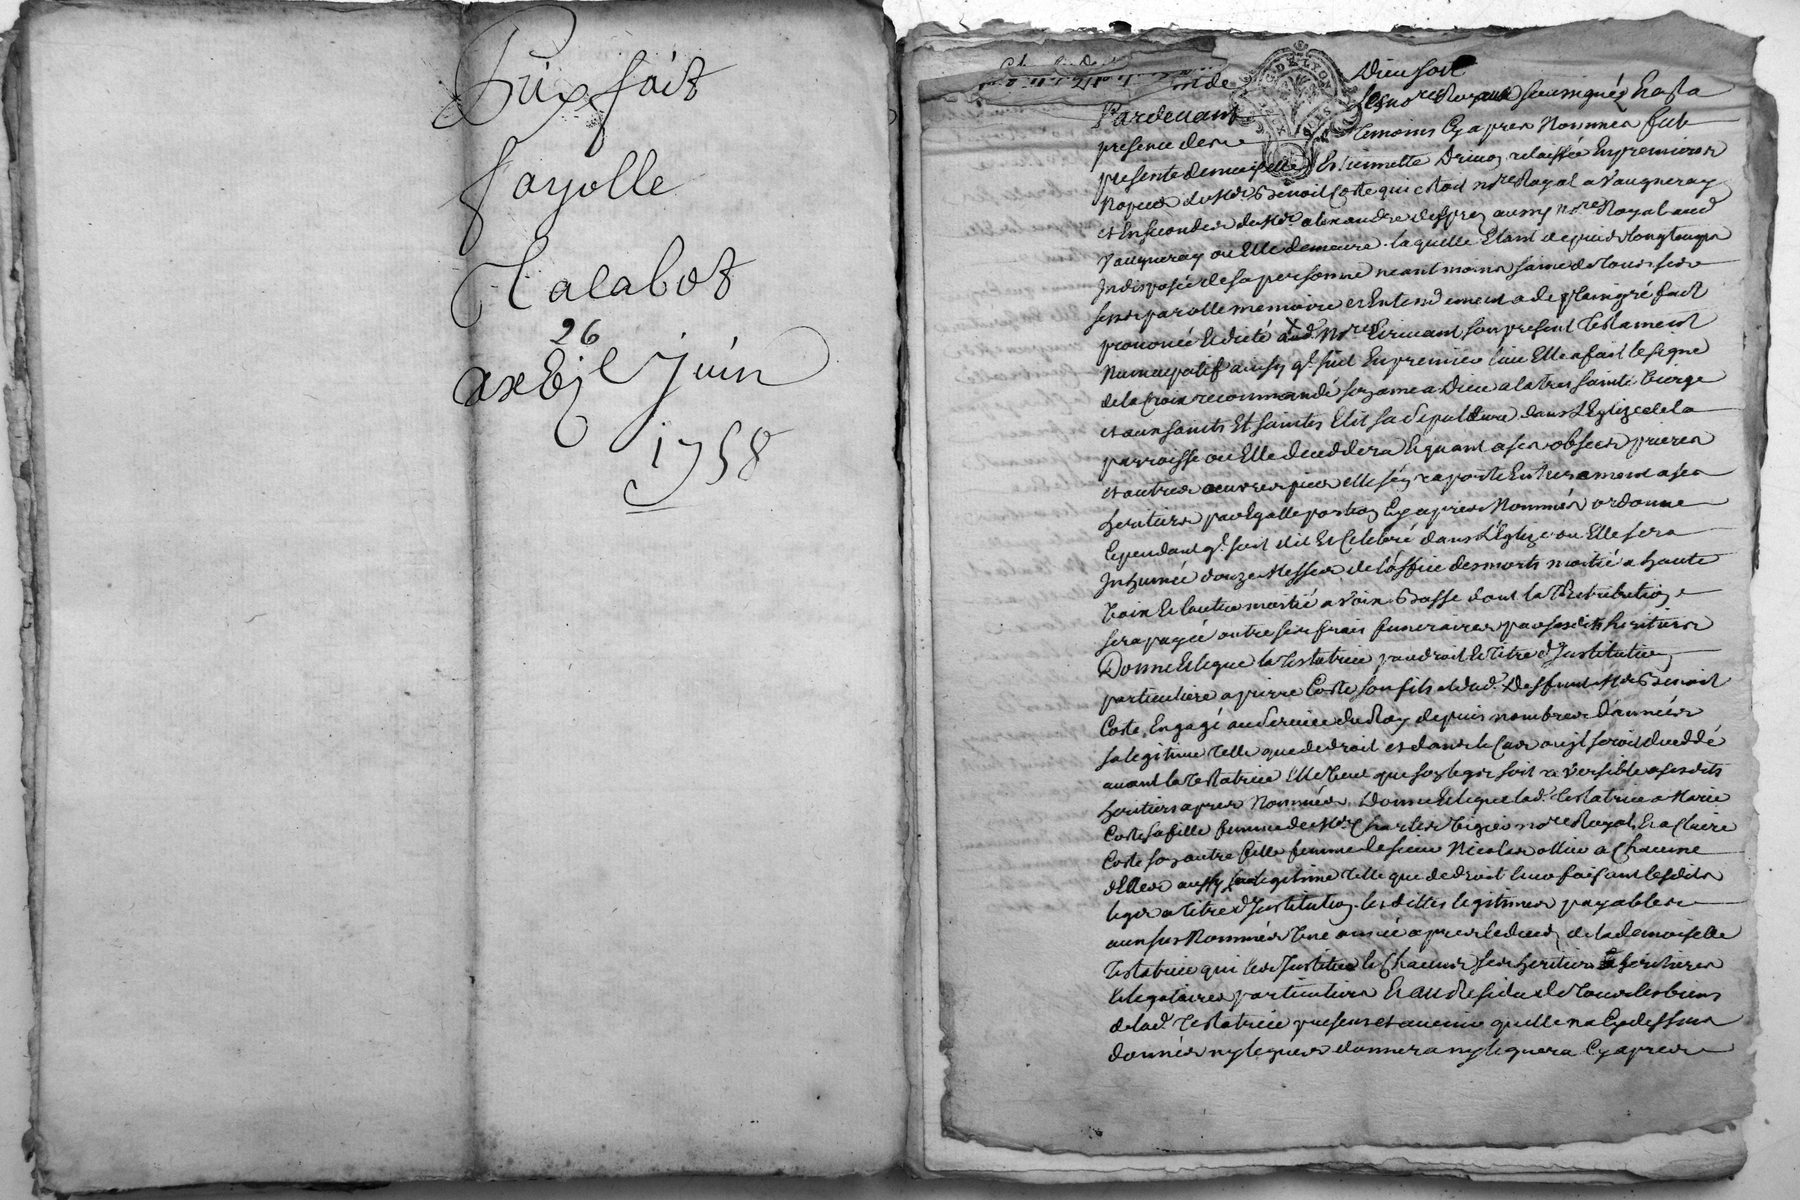 Prix fait
fayolle
Talabot
26
juin
1758
G DE LYON
Dieu soit
Pardevant Les no.res Royaux soussignés & a la
presence des temoins Cy apres Nommés fut
presente demoiselle Estiennette relaissée En premieres
Nopces de Me. Benoit Coste qui etoit no.re Royal a Vaugneray
et En secondes de Me. alexandre aussy no.re Royal aud
Vaugneray ou Elle demeure. laquelle Etant depuis longtemps
Indisposée de sa personne neant moins saine de tous ses
sens parolle memoire et Entendement a de plain gré fait
prononcé & dicté aud. No.res Ecrivant son present Testament
Nuncupatif ainsy q.l suit En premier lieu Elle a fait le signe
de la Croix recommandé son ame a Dieu a la tres sainte Vierge
et aux saints Et saintes Elit sa sepulture dans L'Eglize de la
parroisse ou Elle deceddera Et quant a ses obseques prieres
et autres œuvres pies elle s'en raporte Entierement a ses
heritiers par Egalle portion Cy apres Nommés ordonne
Cependant q.l soit dit Et Celebré dans L'Eglize ou Elle sera
Inhumée douze Messes de l'office des morts moitié a haute
Voix Et l'autre moitié a Voix Basse dont la Retribution
sera payée outre ses frais funeraires par sesdits heritiers
Donne & legue la Testatrice par droit & titre d'Institution
particuliere a pierre Coste son fils et dud. Deffunt Me. Benoit
Coste, Engagé au service du Roy depuis nombres d'années
sa legitime telle que de droit et dans le Cas ou il seroit deceddé
avant la Testatrice Elle Veut que son legs soit reversible a sesdits
heritiers apres Nommés. Donne & legue lad. Testatrice a Marie
Coste sa fille femme de Me. Charles no.re Royal, Et a Claire
Coste son autre fille femme de sieur Nicolas ollier a Chacune
d'Elles aussy sa legitime telle que de droit leur faisant lesdits
legs a titre d'Institution lesdittes legitimes payables
aux sus Nommés Une année apres le deces de la demoiselle
Testatrice qui les Institue & Chacuns ses heritiers & heritieres
& legataires particuliers Et au Residu de Tous les biens
de lad. Testatrice presens et avenir quelle na Cy dessus
donnés ny legués donnera ny leguera Cy apres